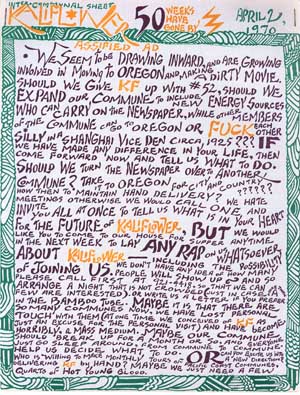 INTER-COMMUNAL SHEET
KALIFLOWER
50 WEEKS HAVE GONE BY
APRIL 2, 1970
ASSIFIED AD
WE SEEM TO BE DRAWING INWARD, AND ARE GROWING
INVOLVED IN MOVING TO OREGON AND MAKING A DIRTY MOVIE.
SHOULD WE GIVE KF UP WITH #52, SHOULD WE
EXPAND OUR COMMUNE TO INCLUDE NEW ENERGY SOURCES
WHO CAN CARRY ON THE NEWSPAPER, WHILE OTHER MEMBERS
OF THE COMMUNE GO TO OREGON OR FUCK EACH OTHER
SILLY IN A SHANGHAI VICE DEN CIRCA 1925??? IF
WE HAVE MADE ANY DIFFERENCE IN YOUR LIFE, THEN
COME FORWARD NOW AND TELL US WHAT TO DO.
SHOULD WE TURN THE NEWSPAPER OVER TO ANOTHER
COMMUNE? TAKE TO OREGON FOR CITY AND COUNTRY?
HOW THEN TO MAINTAIN HAND DELIVERY? ?????
MEETINGS OTHERWISE WE WOULD CALL ONE AND
INVITE YOU ALL AT ONCE TO TELL US WHAT IS IN YOUR HEART
FOR THE FUTURE OF KALIFLOWER, BUT WE WOULD
LIKE YOU TO COME TO OUR HOUSE FOR SUPPER ANYTIME
IN THE NEXT WEEK TO LAY ANY RAP ON US WHATSOEVER
ABOUT KALIFLOWER INCLUDING THE POSSIBILITY
OF JOINING US. WE DON'T HAVE ANY IDEA OF HOW MANY
PEOPLE WILL SHOW UP SO
PLEASE CALL AND
ARRANGE A NIGHT THAT IS NOT OVERCROWDED
IN THE BAMBOO TUBE. MAYBE IT IS THAT THERE ARE
SO MANY COMMUNES NOW, WE HAVE LOST PERSONAL
TOUCH WITH THEM (AT ONE TIME WE CONCEIVED OF KF AS
JUST AN EXCUSE FOR THE PERSONAL VISIT) AND HAVE BECOME,
HORRIBLY, A MASS MEDIUM. MAYBE OUR COMMUNE
SHOULD BREAK UP FOR A MONTH OR SO, AND EVERYONE
JUST GO SLEEP AROUND, FROM COMMUNE TO COMMUNE.
HELP US DECIDE WHAT TO DO. OR CAN YOU EXCITE US WITH
WHO IS WILLING TO MAKE MONTHLY TOURS OF A NEW DIRECTION?
DELIVERING KF BY HAND? MAYBE WE JUST NEED A FEW
QUARTS OF HOT YOUNG BLOOD.